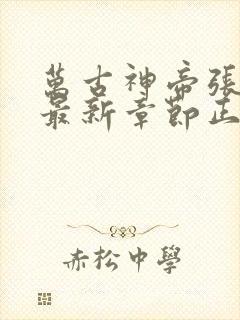 萬古神帝張
最新章節正
赤松中學